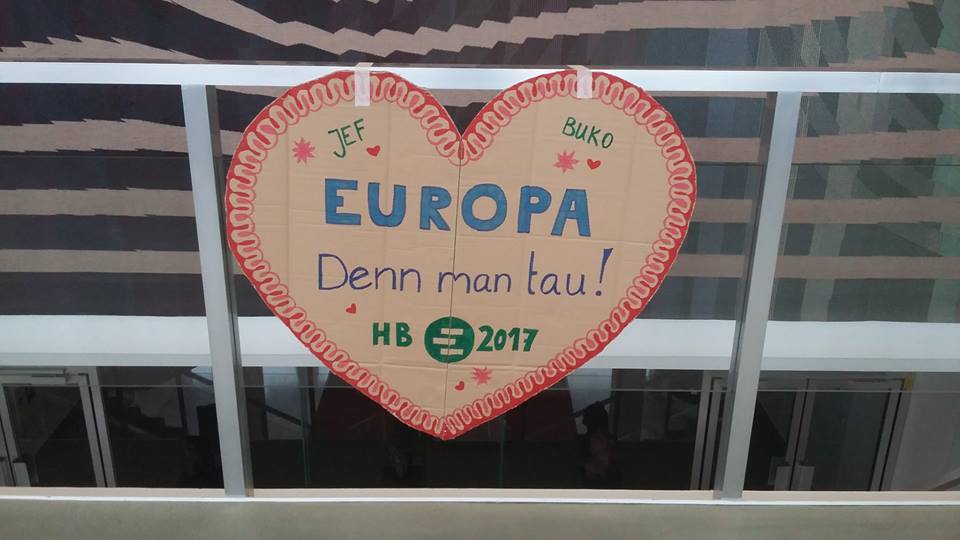 JEF BUKO
EUROPA
Denn man tau!
HB 2017